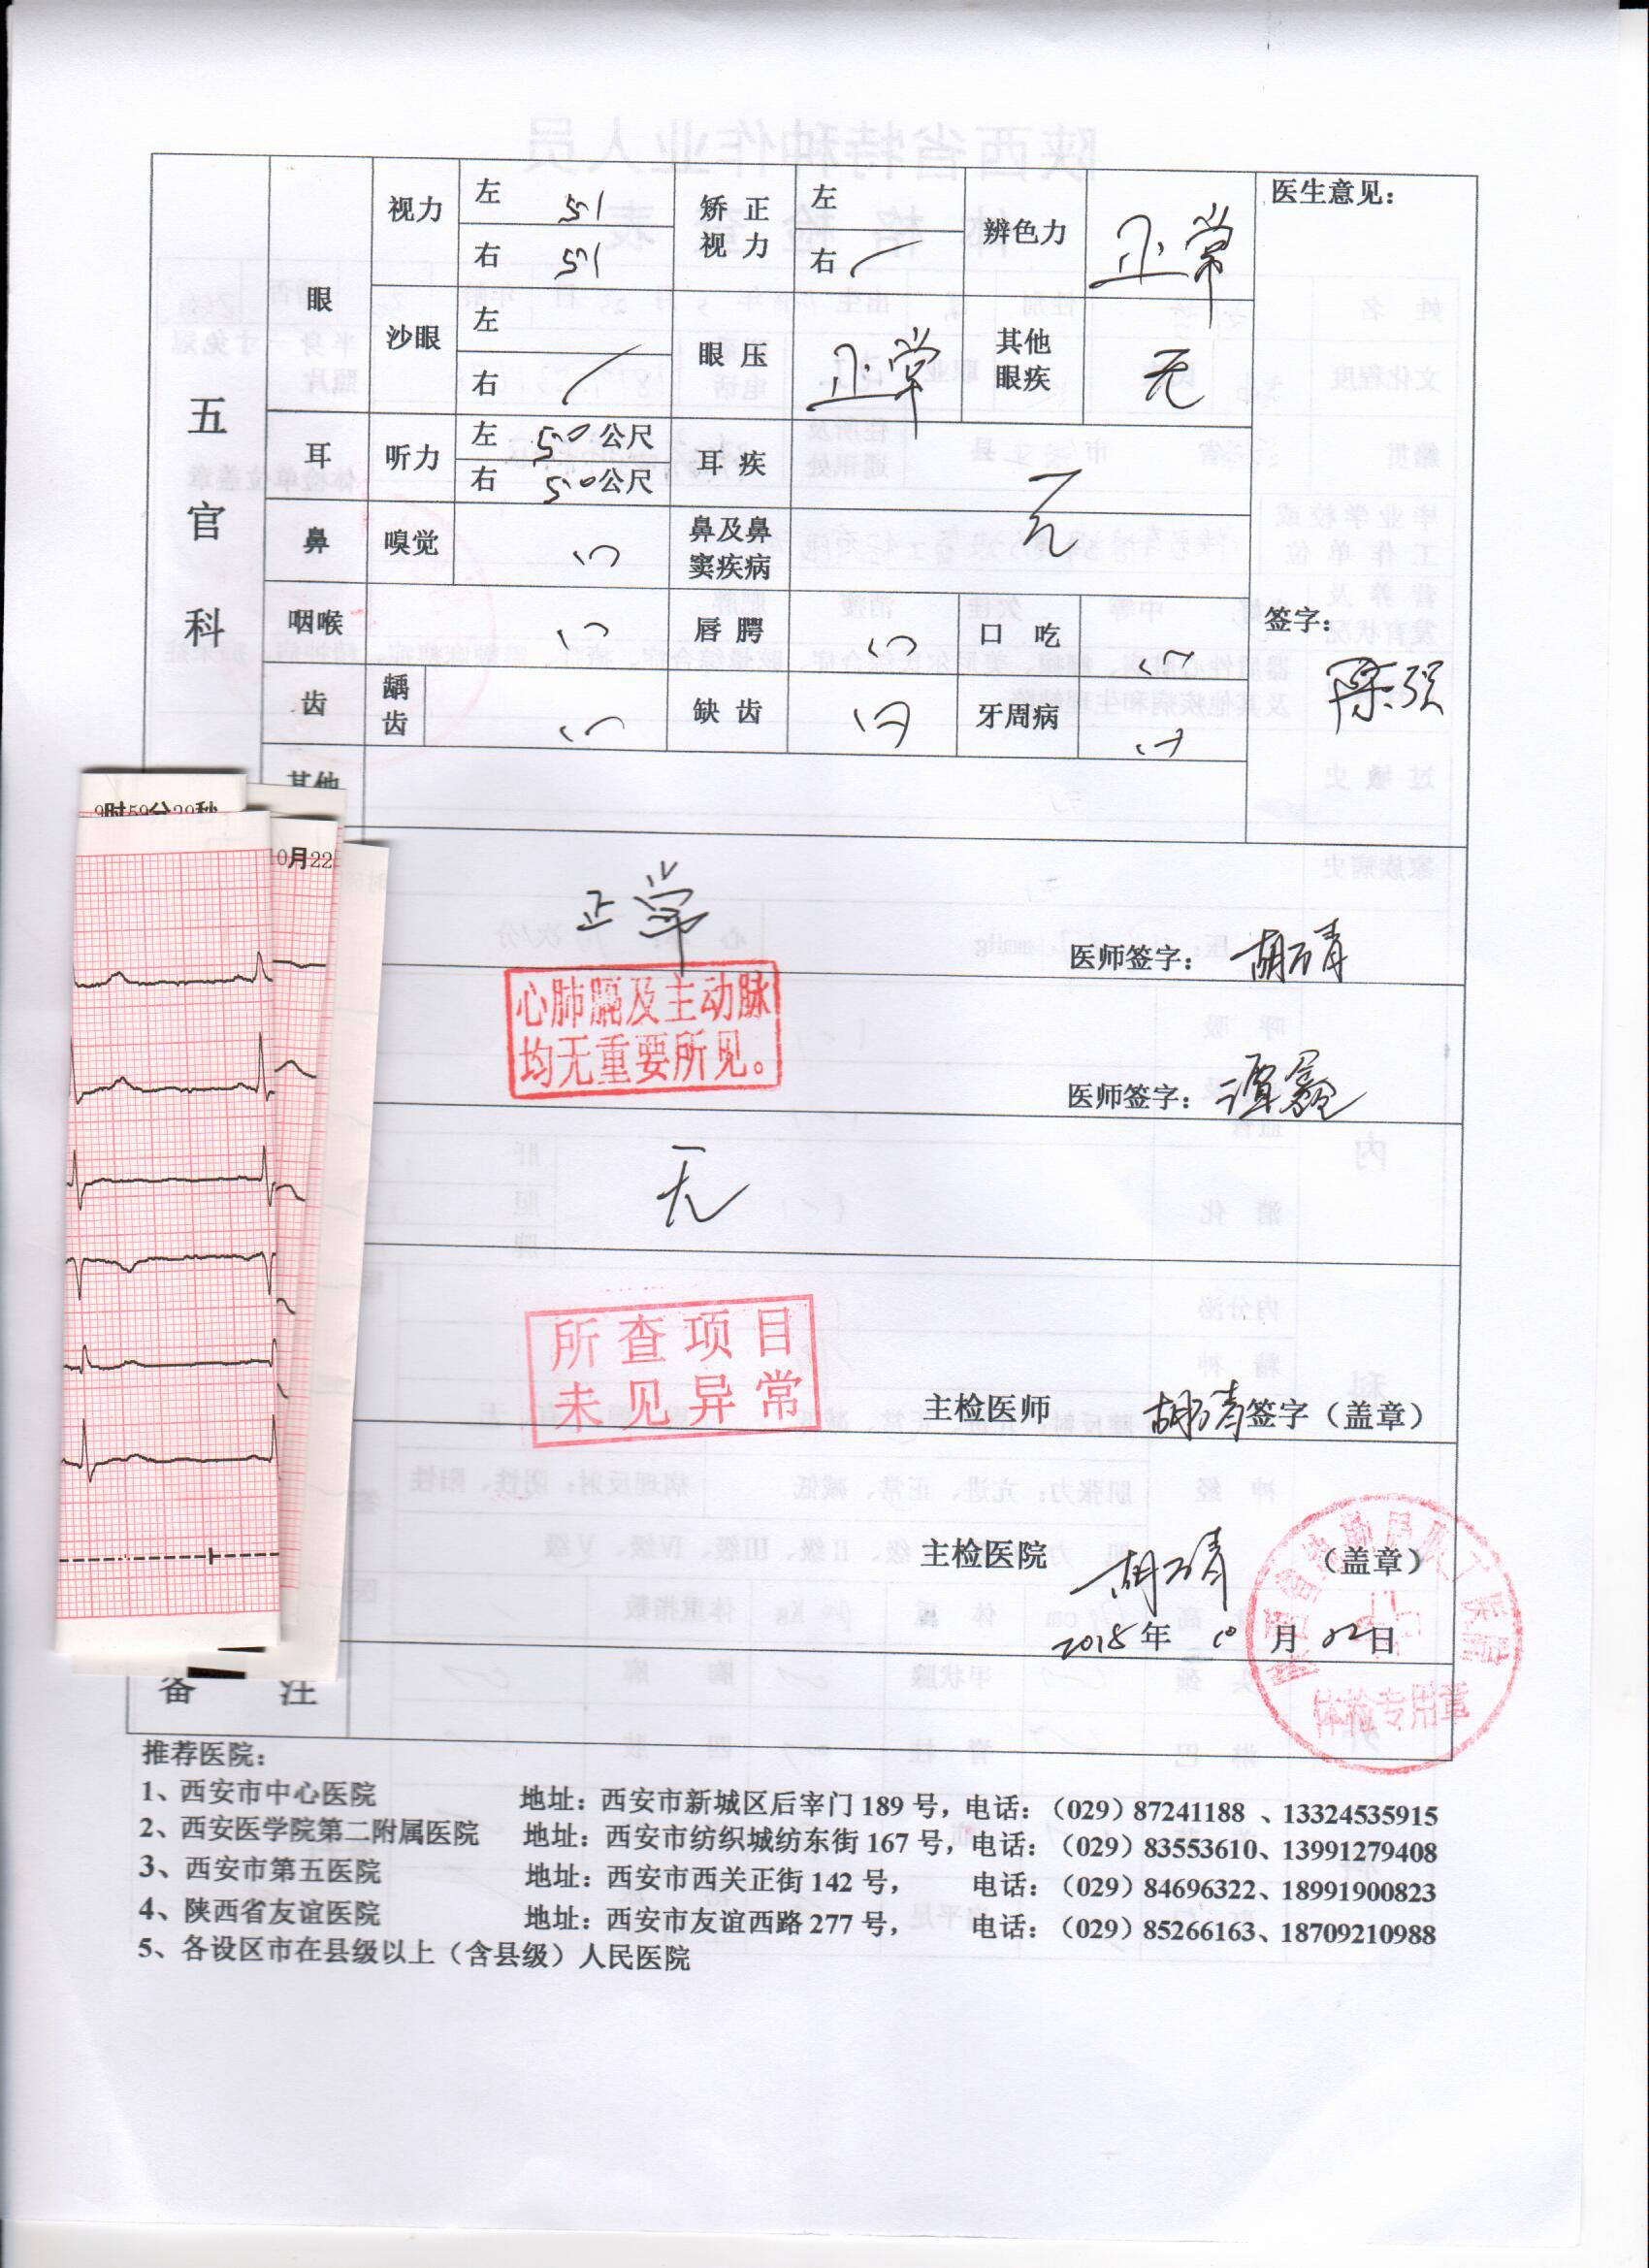 五官科
眼
视力
左 5.1
右 5.1
矫正视力
左
右
辨色力
正常
医生意见：
沙眼
左
右
眼压
正常
其他眼疾
无
耳
听力
左 5.0 公尺
右 5.0 公尺
耳疾
无
鼻
嗅觉
(-)
鼻及鼻窦疾病
咽喉
(-)
唇腭
(-)
口吃
(-)
签字：
陈强
齿
龋齿
(-)
缺齿
(-)
牙周病
(-)
其他
9时59分29秒
0月22
正常
医师签字：
心肺膈及主动脉
均无重要所见。
医师签字：
无
所查项目
未见异常
主检医师 签字（盖章）
主检医院 （盖章）
2018年 10月 22日
体检专用章
备注
推荐医院：
1、西安市中心医院 地址：西安市新城区后宰门 189 号，电话：（029）87241188 、13324535915
2、西安医学院第二附属医院 地址：西安市纺织城纺东街 167 号，电话：（029）83553610、13991279408
3、西安市第五医院 地址：西安市西关正街 142 号， 电话：（029）84696322、18991900823
4、陕西省友谊医院 地址：西安市友谊西路 277 号， 电话：（029）85266163、18709210988
5、各设区市在县级以上（含县级）人民医院